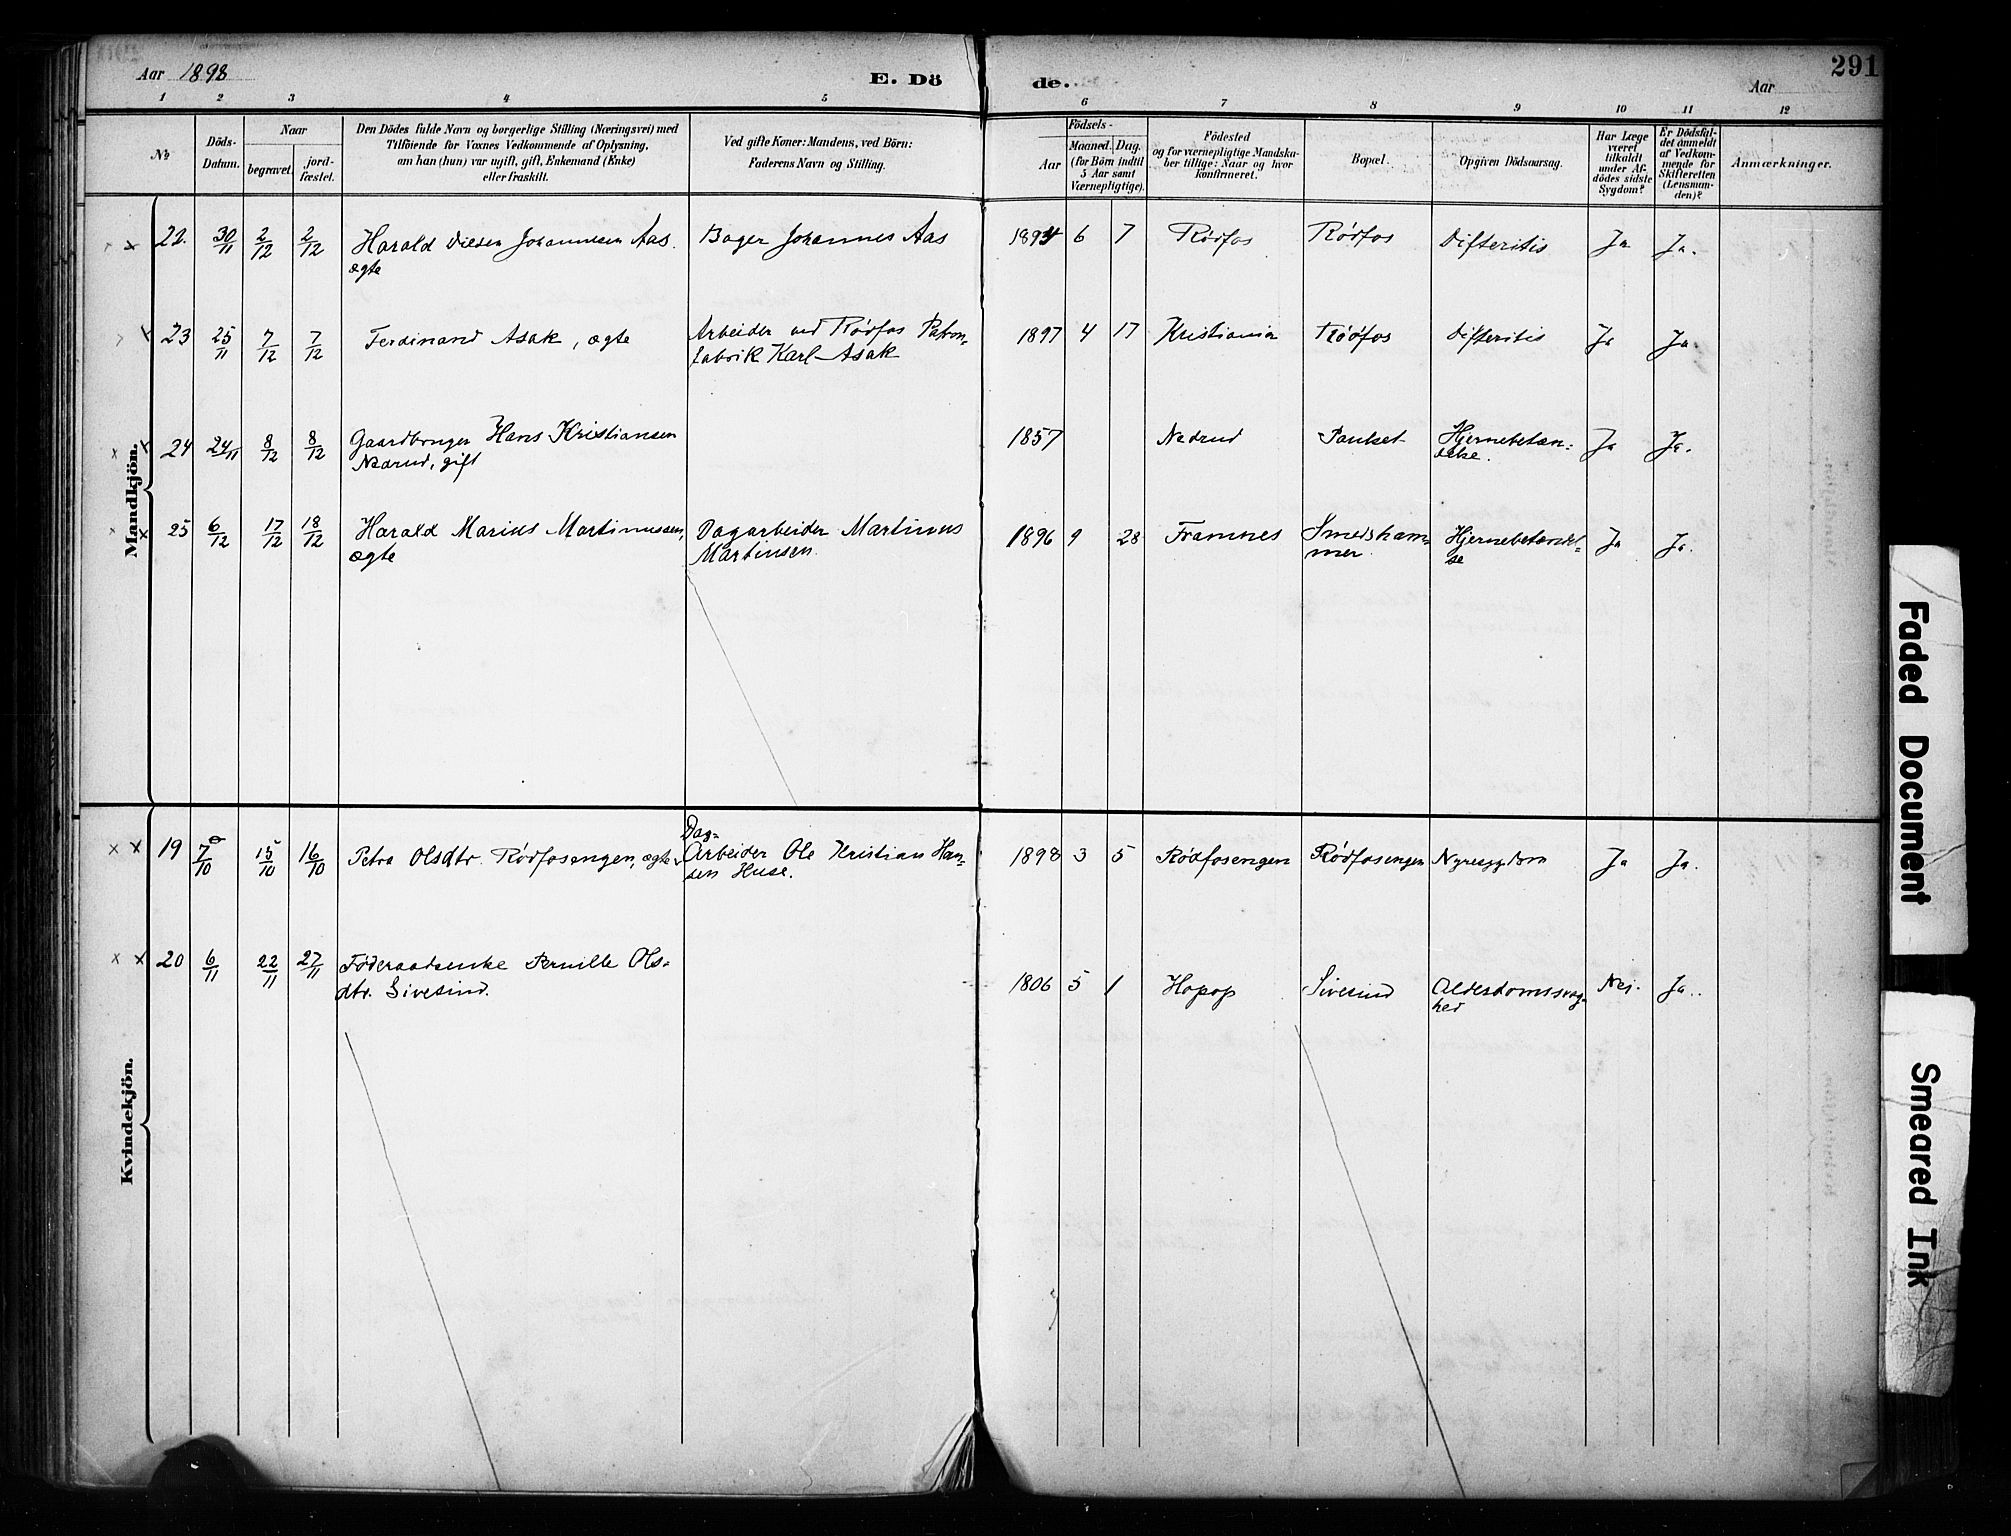 Aar 1898
E. Dö
de.
Aar
291
1 2 3 4 5 6 7 8 9 10 11 12
No
Döds-
Datum.
Naar
begravet.
jord-
fæstet.
Den Dödes fulde Navn og borgerlige Stilling (Næringsvei) med
Tilföiende for Voxnes Vedkommende af Oplysning,
om han (hun) var ugift, gift, Enkemand (Enke)
eller fraskilt.
Ved gifte Koner: Mandens, ved Börn:
Faderens Navn og Stilling.
Födsels-
Aar
Maaned. Dag.
(for Börn indtil
5 Aar samt
Værnepligtige).
Födested
og for værnepligtige Mandska-
ber tillige: Naar og hvor
konfirmeret.
Bopæl.
Opgiven Dödsaarsag.
Har Læge
været
tilkaldt
under Af-
dödes sidste
Sygdom?
Er Dödsfal-
det anmeldt
af Vedkom-
mende for
Skifteretten
(Lensman-
den)?
Anmærkninger.
Mandkjön.
22. 30/11 2/12 2/12 Harald Johannesen Aas. Bager Johannes Aas 6 7 Rödfos Rödfos Difteritis Ja Ja.
ægte
23 25/11 7/12 7/12 Ferdinand Asak, ægte Arbeider ved Rödfos Patron- 1897 4 17 Kristiania Rödfos Difteritis Ja Ja.
fabrik Karl Asak
24 24/11 8/12 8/12 Gaardbruger Hans Kristiansen 1857 Nedrud Pauket Hjernebetæn- Ja Ja.
gift delse.
25 6/12 17/12 18/12 Harald Marius Martinussen, Dagarbeider Martinus 1896 9 28 Framnes Smedsham- Hjernebetændel- Ja Ja.
ægte Martinsen. mer. se
Kvindekjön.
Dag-
19 7/10 15/10 16/10 Petra Olsdtr. Rödfosengen, ægte Arbeider Ole Kristian Han- 1898 3 5 Rödfosengen Rödfosengen Nyresygdom Ja Ja.
sen Huse.
20 6/11 22/11 27/11 Föderaadsenke Pernille Ols-
dtr. Sivesind. 1806 5 1 Hopop Sivesind Alderdomssvag- Nei. Ja.
hed
Faded Document
Smeared Ink